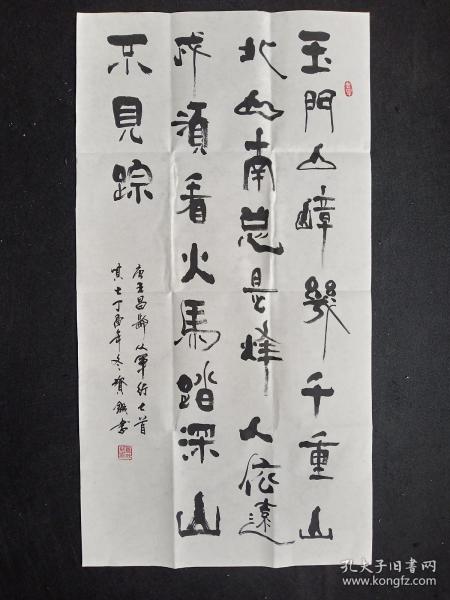 玉門山嶂幾千重山
北山南总是烽人依遠
戍須看火馬踏深山
不見踪
唐王昌齡从軍行七首
其七丁酉年冬書
孔夫子旧书网
www.kongfz.com